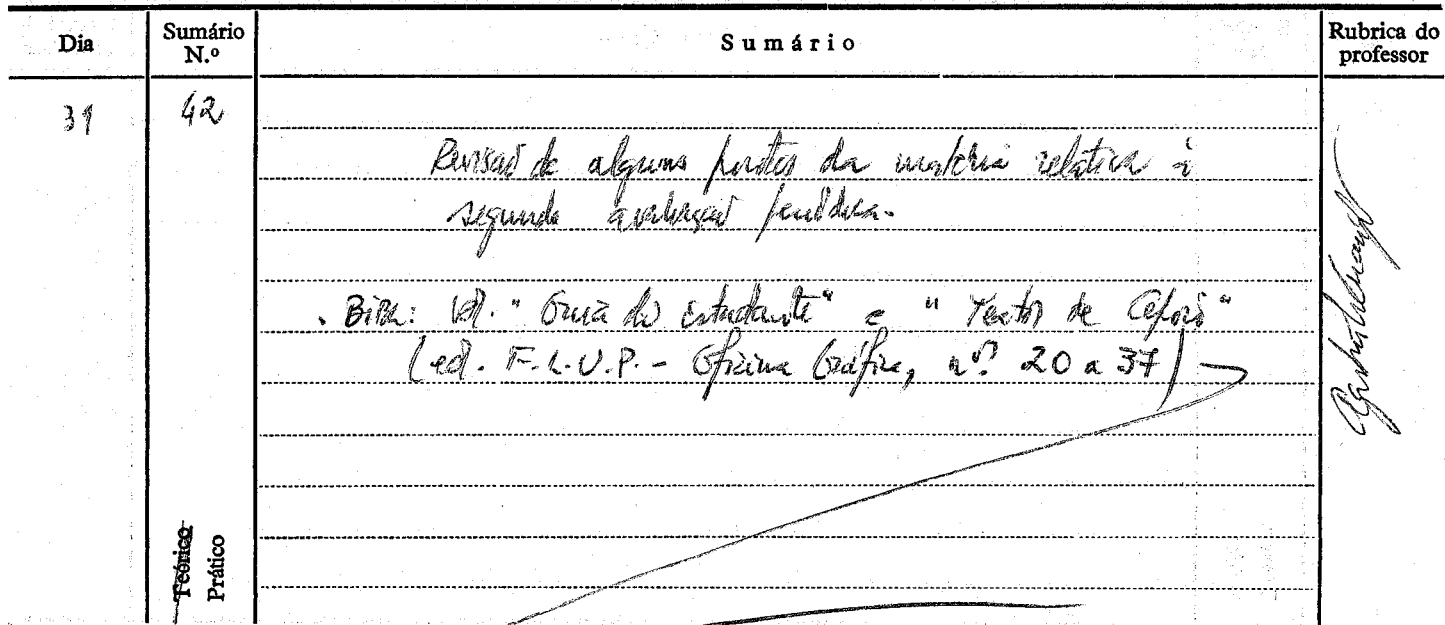 Dia
Sumário N.º
Sumário
Rubrica do professor
31
42
Revisão de alguns pontos da matéria relativa à
segunda avaliação periódica.
. Bibl: Vd. "Guia do estudante" e "Textos de Apoio"
(ed. F.L.U.P. - Oficina Gráfica, nº. 20 a 37)
Teórico
Prático